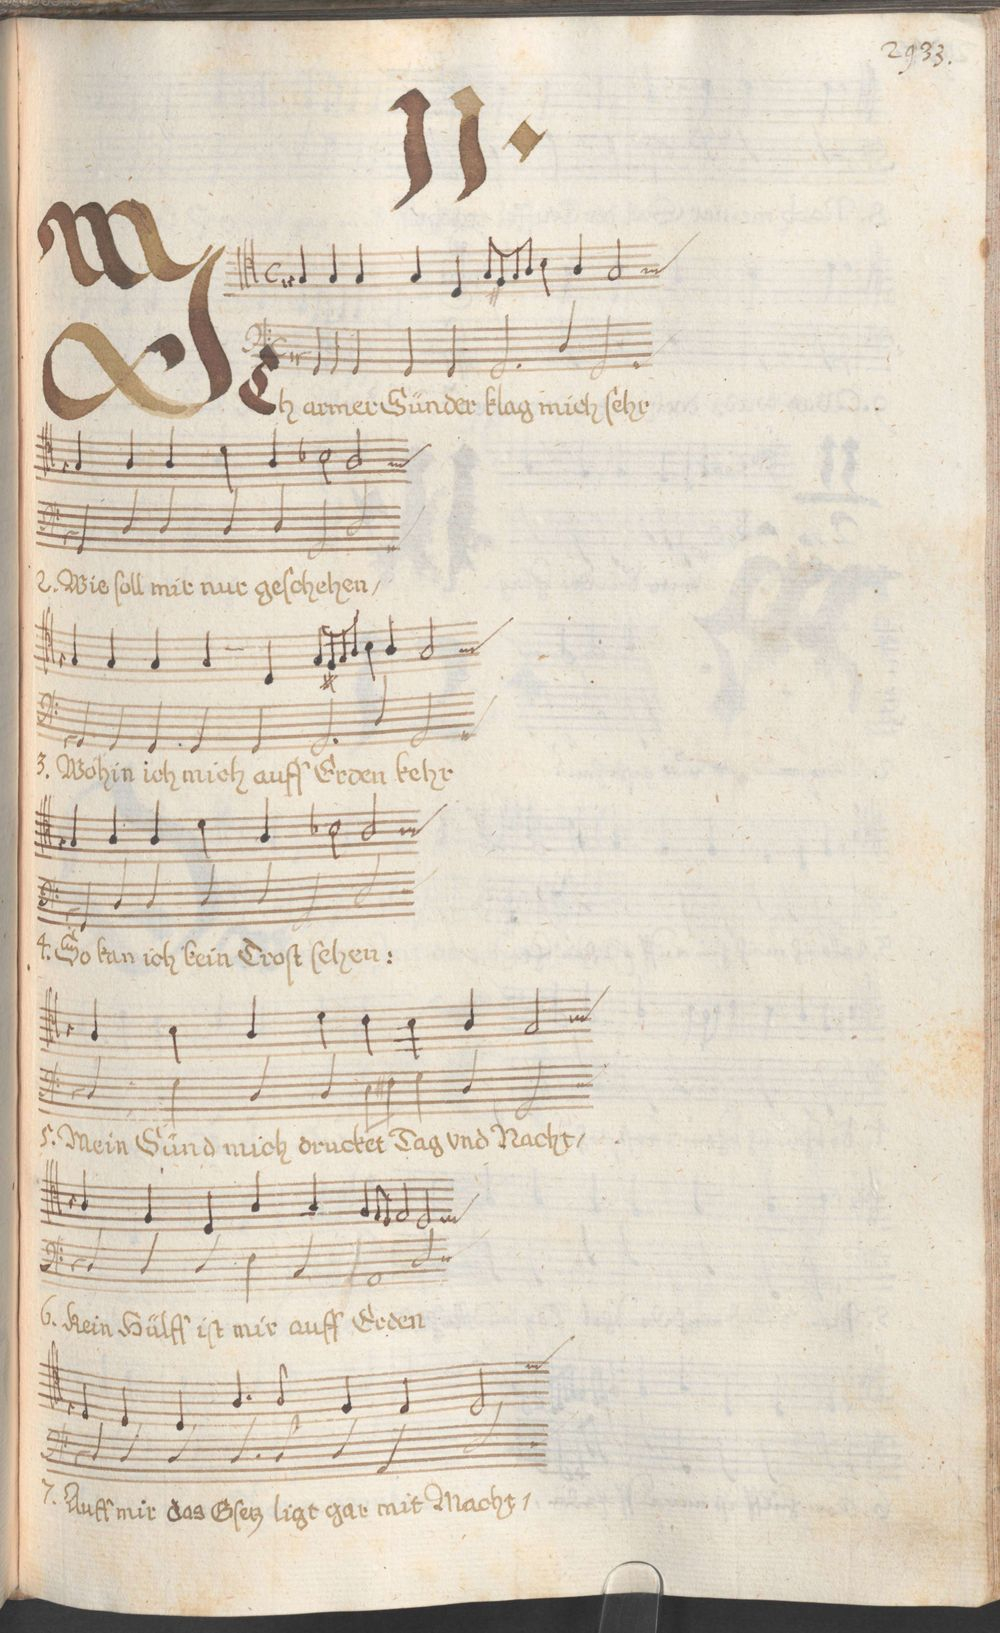 2933.
11.
ICh armer Sünder klag mich sehr
2. Wie soll mir nur geschehen,
3. Wohin ich mich auff Erden kehr
4. So kan ich kein Trost sehen:
5. Mein Sünd mich drucket Tag vnd Nacht,
6. Kein Hülff ist mir auff Erden
7. Auff mir das Gsetz ligt gar mit Macht,